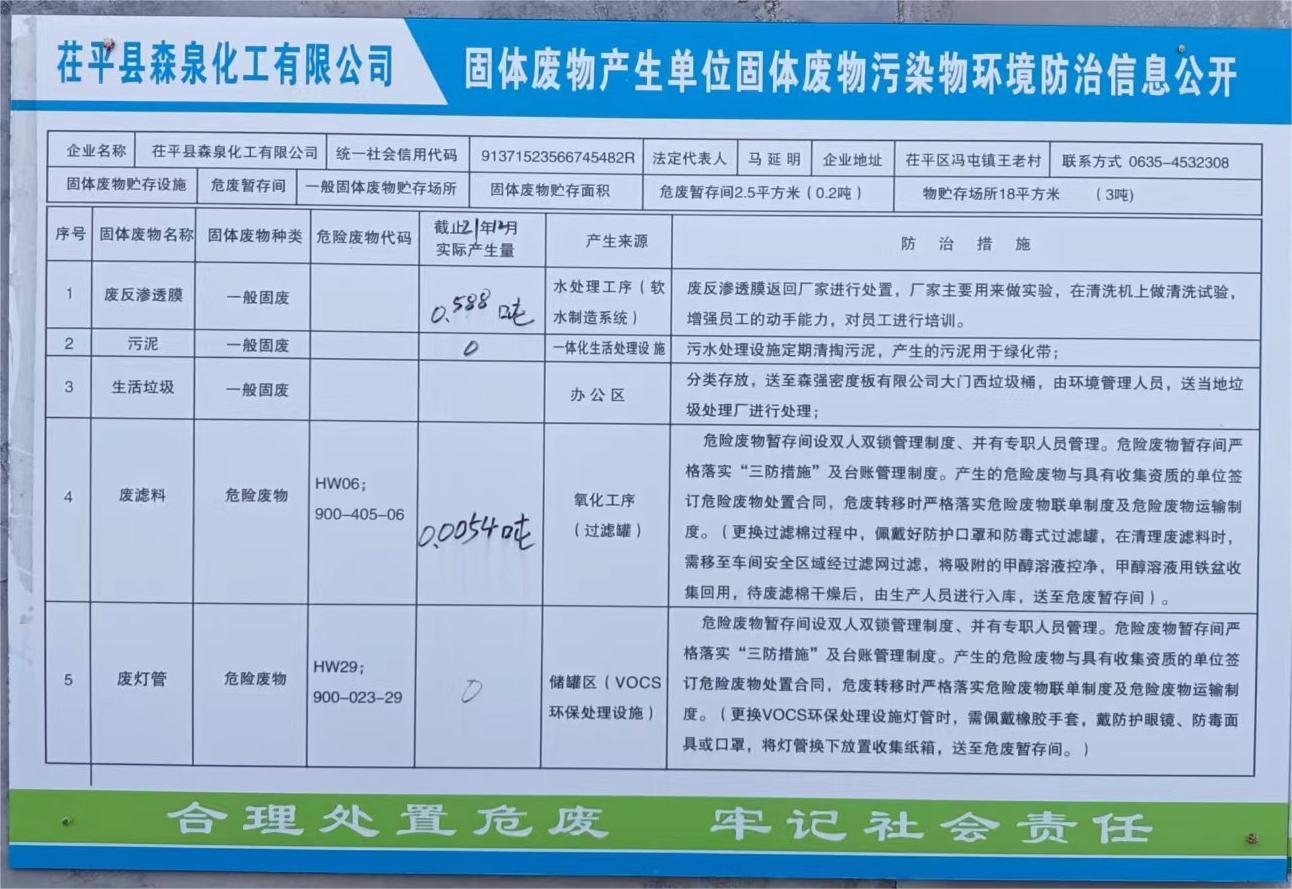 茌平县森泉化工有限公司
固体废物产生单位固体废物污染物环境防治信息公开
企业名称 茌平县森泉化工有限公司 统一社会信用代码 91371523566745482R 法定代表人 马延明 企业地址 茌平区冯屯镇王老村 联系方式 0635-4532308
固体废物贮存设施 危废暂存间 一般固体废物贮存场所 固体废物贮存面积 危废暂存间2.5平方米（0.2吨） 物贮存场所18平方米 （3吨）
序号 固体废物名称 固体废物种类 危险废物代码 截止21年12月 实际产生量 产生来源 防治措施
1 废反渗透膜 一般固废 0.588吨 水处理工序（软
水制造系统）
废反渗透膜返回厂家进行处置，厂家主要用来做实验，在清洗机上做清洗试验，
增强员工的动手能力，对员工进行培训。
2 污泥 一般固废 0 一体化生活处理设施 污水处理设施定期清掏污泥，产生的污泥用于绿化带；
3 生活垃圾 一般固废 办公区
分类存放，送至森强密度板有限公司大门西垃圾桶，由环境管理人员，送当地垃
圾处理厂进行处理；
4 废滤料 危险废物
HW06；
900-405-06
0.0054吨
氧化工序
（过滤罐）
危险废物暂存间设双人双锁管理制度、并有专职人员管理。危险废物暂存间严
格落实“三防措施”及台账管理制度。产生的危险废物与具有收集资质的单位签
订危险废物处置合同，危废转移时严格落实危险废物联单制度及危险废物运输制
度。（更换过滤棉过程中，佩戴好防护口罩和防毒式过滤罐，在清理废滤料时，
需移至车间安全区域经过滤网过滤，将吸附的甲醇溶液控净，甲醇溶液用铁盆收
集回用，待废滤棉干燥后，由生产人员进行入库，送至危废暂存间）。
5 废灯管 危险废物
HW29；
900-023-29
0
储罐区（VOCS
环保处理设施）
危险废物暂存间设双人双锁管理制度、并有专职人员管理。危险废物暂存间严
格落实“三防措施”及台账管理制度。产生的危险废物与具有收集资质的单位签
订危险废物处置合同，危废转移时严格落实危险废物联单制度及危险废物运输制
度。（更换VOCS环保处理设施灯管时，需佩戴橡胶手套，戴防护眼镜、防毒面
具或口罩，将灯管换下放置收集纸箱，送至危废暂存间。）
合理处置危废 牢记社会责任